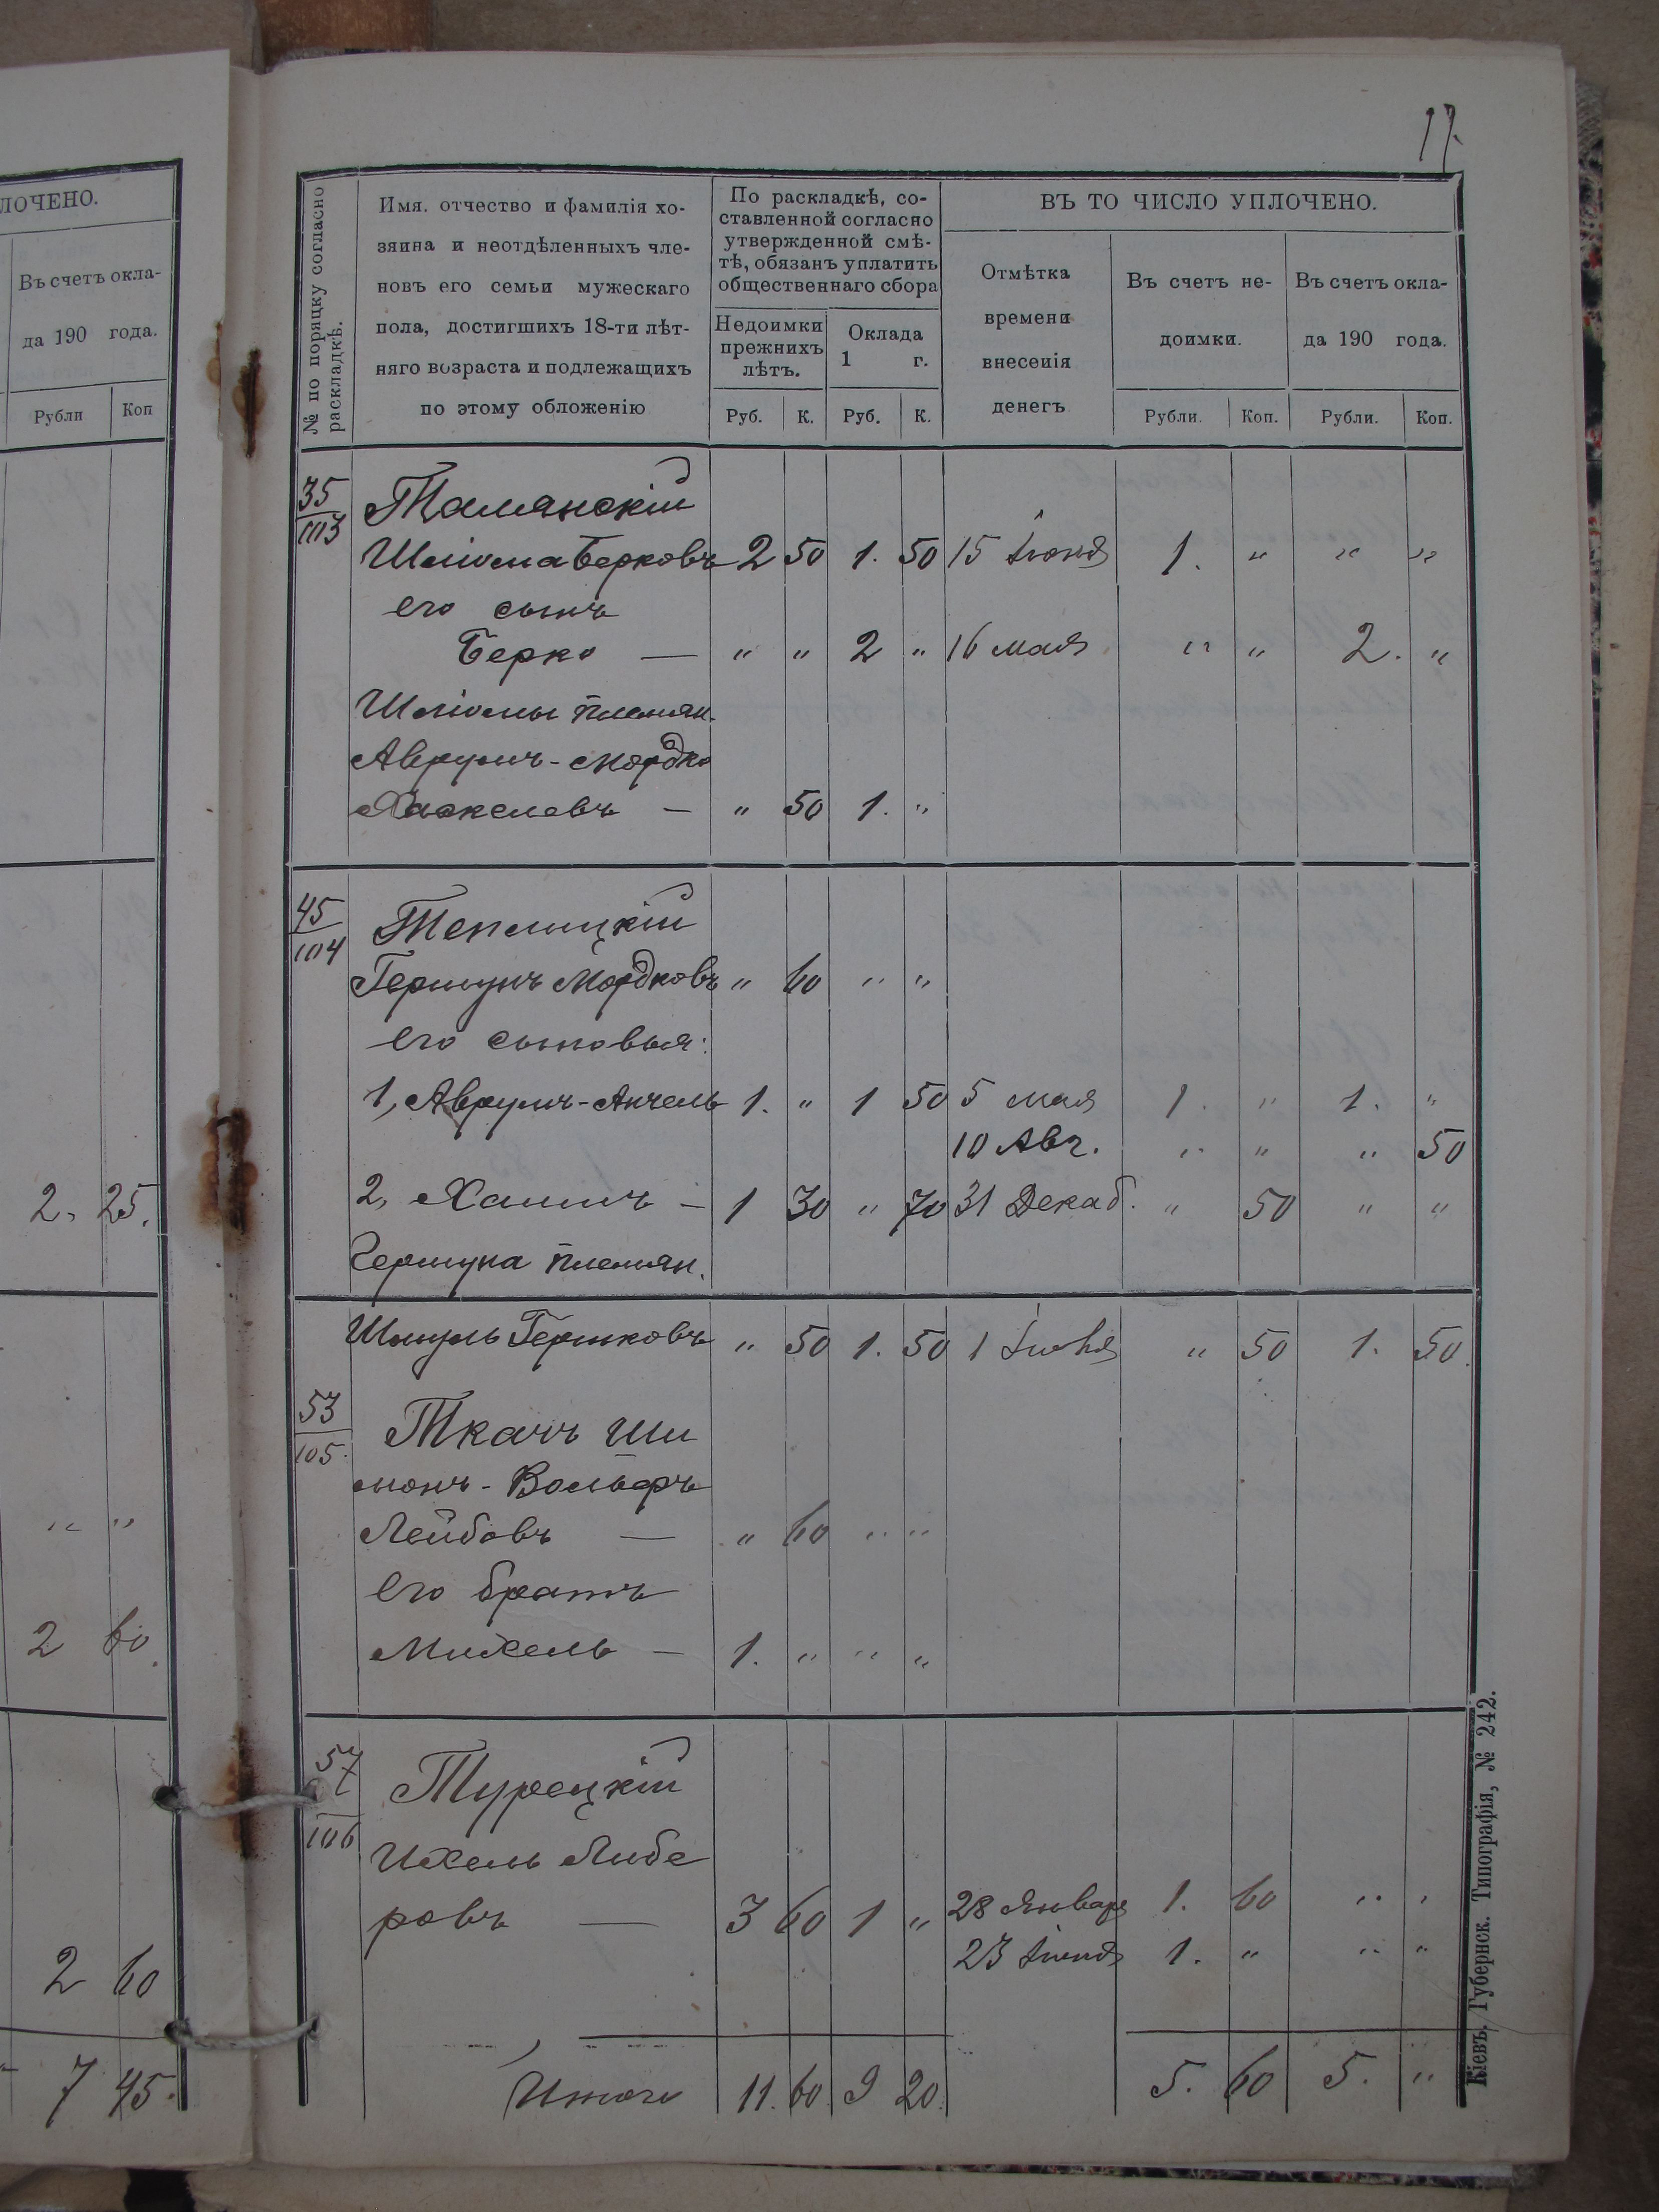 ЛОЧЕНО.
Въ счетъ окла-
да 190 года.
Рубли Коп
2. 25.
„ „
2 60.
2 60
7 45.
17.
№ по поряцку согласно
раскладкѣ.
Имя. отчество и фамилія хо-
зяина и неотдѣленныхъ чле-
новъ его семьи мужескаго
пола, достигшихъ 18-ти лѣт-
няго возраста и подлежащихъ
по этому обложенію
По раскладкѣ, со-
ставленной согласно
утвержденной смѣ-
тѣ, обязанъ уплатить
общественнаго сбора
Недоимки
прежнихъ
лѣтъ.
Оклада
1 г.
Руб. К. Руб. К.
ВЪ ТО ЧИСЛО УПЛОЧЕНО.
Отмѣтка
времени
внесенія
денегъ
Въ счетъ не-
доимки.
Въ счетъ окла-
да 190 года.
Рубли. Коп. Рубли. Коп.
35
103
Талянскій
Шліома Берковъ 2 50 1. 50 15 Іюня 1. „ „ „
его сынъ
Берко — „ „ 2 „ 16 мая „ „ 2. „
Шліомы племян.
Аврумъ-Мордко
Хаскелевъ — „ 50 1. „
45
104
Теплицкій
Гершунъ Мордковъ „ 60 „ „
его сыновья:
1, Аврумъ-Анчель 1. „ 1 50 5 мая 1. „ 1. „
10 Авг. „ „ „ 50
2, Хаимъ — 1 30 „ 70 31 Декаб. „ 50 „ „
Гершуна племян.
Шмуль Гершковъ „ 50 1. 50 1 Іюня „ 50 1. 50.
53
105.
Ткачъ Ши
монъ-Вольфъ
Лейбовъ — „ 60 „ „
его братъ
Михель — 1. „ „ „
57
106
Турецкій
Ихель Либе
ровъ — 3 60 1 „ 28 Января 1. 60 „ „
23 Іюня 1. „ „ „
Итого 11. 60. 9 20. 5. 60 5. „
Кіевъ. Губернск. Типографія, № 242.